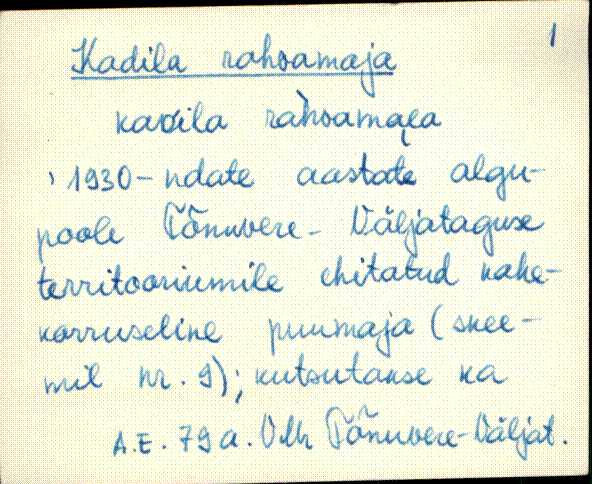 1
Kadila rahvamaja
'1930-ndate aastate algu-
poole Tõnuvere-Väljataguse
territooriumile ehitatud kahe-
korruseline puumaja (skee-
mil nr. 9); kutsutakse ka
A.E. 79 a. VMr Tõnuvere-Väljat.